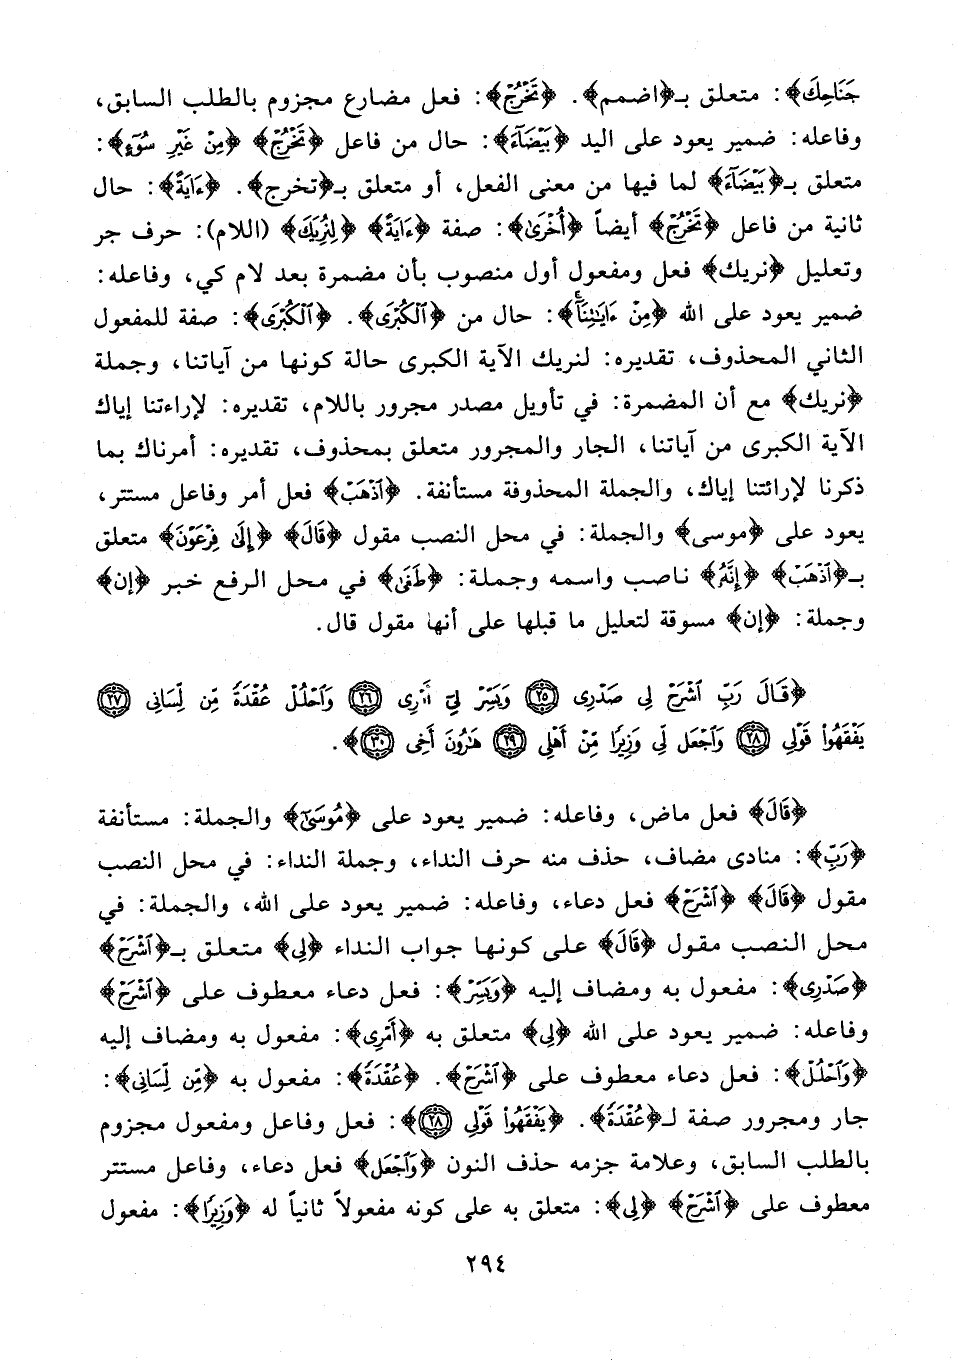 جَنَاحِكَ﴾: متعلق بـ﴿اضمم﴾. ﴿تَخْرُجْ﴾: فعل مضارع مجزوم بالطلب السابق،
وفاعله: ضمير يعود على اليد ﴿بَيْضَآءَ﴾: حال من فاعل ﴿تَخْرُجْ﴾ ﴿مِنْ غَيْرِ سُوٓءٍ﴾:
متعلق بـ﴿بَيْضَآءَ﴾ لما فيها من معنى الفعل، أو متعلق بـ﴿تخرج﴾. ﴿ءَايَةً﴾: حال
ثانية من فاعل ﴿تَخْرُجْ﴾ أيضاً ﴿أُخْرَىٰ﴾: صفة ﴿ءَايَةً﴾ ﴿لِنُرِيَكَ﴾ (اللام): حرف جر
وتعليل ﴿نريك﴾ فعل ومفعول أول منصوب بأن مضمرة بعد لام كي، وفاعله:
ضمير يعود على الله ﴿مِنْ ءَايَـٰتِنَا﴾: حال من ﴿ٱلْكُبْرَى﴾. ﴿ٱلْكُبْرَى﴾: صفة للمفعول
الثاني المحذوف، تقديره: لنريك الآية الكبرى حالة كونها من آياتنا، وجملة
﴿نريك﴾ مع أن المضمرة: في تأويل مصدر مجرور باللام، تقديره: لإراءتنا إياك
الآية الكبرى من آياتنا، الجار والمجرور متعلق بمحذوف، تقديره: أمرناك بما
ذكرنا لإرائتنا إياك، والجملة المحذوفة مستأنفة. ﴿ٱذْهَبْ﴾ فعل أمر وفاعل مستتر،
يعود على ﴿موسى﴾ والجملة: في محل النصب مقول ﴿قَالَ﴾ ﴿إِلَىٰ فِرْعَوْنَ﴾ متعلق
بـ﴿ٱذْهَبْ﴾ ﴿إِنَّهُۥ﴾ ناصب واسمه وجملة: ﴿طَغَىٰ﴾ في محل الرفع خبر ﴿إن﴾
وجملة: ﴿إن﴾ مسوقة لتعليل ما قبلها على أنها مقول قال.
﴿قَالَ رَبِّ ٱشْرَحْ لِى صَدْرِى ٢٥ وَيَسِّرْ لِىٓ أَمْرِى ٢٦ وَٱحْلُلْ عُقْدَةً مِّن لِّسَانِى ٢٧
يَفْقَهُوا۟ قَوْلِى ٢٨ وَٱجْعَل لِّى وَزِيرًا مِّنْ أَهْلِى ٢٩ هَـٰرُونَ أَخِى ٣٠﴾.
﴿قَالَ﴾ فعل ماض، وفاعله: ضمير يعود على ﴿مُوسَىٰ﴾ والجملة: مستأنفة
﴿رَبِّ﴾: منادى مضاف، حذف منه حرف النداء، وجملة النداء: في محل النصب
مقول ﴿قَالَ﴾ ﴿ٱشْرَحْ﴾ فعل دعاء، وفاعله: ضمير يعود على الله، والجملة: في
محل النصب مقول ﴿قَالَ﴾ على كونها جواب النداء ﴿لِى﴾ متعلق بـ﴿ٱشْرَحْ﴾
﴿صَدْرِى﴾: مفعول به ومضاف إليه ﴿وَيَسِّرْ﴾: فعل دعاء معطوف على ﴿ٱشْرَحْ﴾
وفاعله: ضمير يعود على الله ﴿لِى﴾ متعلق به ﴿أَمْرِى﴾: مفعول به ومضاف إليه
﴿وَٱحْلُلْ﴾: فعل دعاء معطوف على ﴿ٱشْرَحْ﴾. ﴿عُقْدَةً﴾: مفعول به ﴿مِّن لِّسَانِى﴾:
جار ومجرور صفة لـ﴿عُقْدَةً﴾. ﴿يَفْقَهُوا۟ قَوْلِى ٢٨﴾: فعل وفاعل ومفعول مجزوم
بالطلب السابق، وعلامة جزمه حذف النون ﴿وَٱجْعَل﴾ فعل دعاء، وفاعل مستتر
معطوف على ﴿ٱشْرَحْ﴾ ﴿لِى﴾: متعلق به على كونه مفعولاً ثانياً له ﴿وَزِيرًا﴾: مفعول
٢٩٤